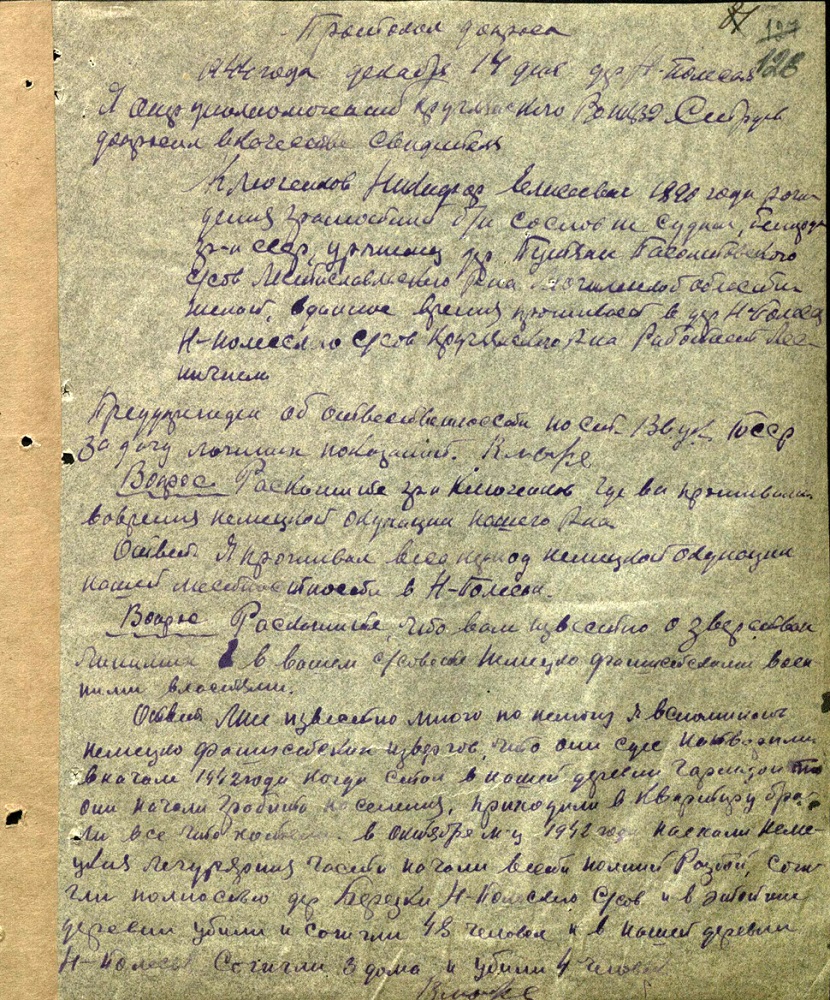 127
128
Протокол допроса
1944 года декабря 14 дня дер Н-Полесье
Я опер уполномоченный круглянского
допросил в качестве свидетеля
Ключенков Никифор 1890 года рож-
дения грамотный б/п сослов не судим,
гр-н ссср, уроженец дер.
с/сов Мстиславльского р-на Могилевской области
женат, в данное время проживает в дер Н-Полесье
Н-Полесского с/сов Круглянского р-на Работает лес-
ничием
Предупрежден об ответственности по ст. ук. БССР
За дачу ложных показаний.
Вопрос Раскажите гр-н Ключенков где вы проживали
вовремя немецкой окупации нашего р-на
Ответ Я проживал весь период немецкой окупации
нашей местности в Н-Полесье.
Вопрос Раскажите, что вам известно о зверствах
в вашем с/совете немецко фашистскими воен-
ными властями.
Ответ Мне известно много по немогу я вспоминать
немецко фашистских извергов, что они сде
вначале 1942 года когда стоял в нашей деревни гарнизон
они начали грабить населения, приходили в квартиру бра-
ли все что в октябре м-ц 1942 года наехали неме-
цкия части начали вести полный сож-
гли полностью дер Березки Н-Полеского с/сов и в этой
деревни убили и сожгли 48 человек и в нашей деревни
Н-Полесье сожгли 3 дома и убили 4 человек